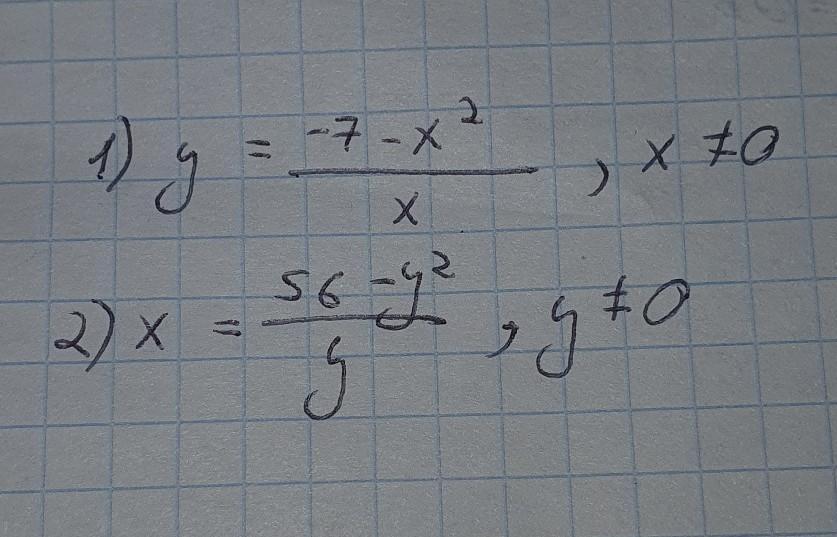 1) y = (-7 - x²)/x , x ≠ 0
2) x = (56 - y²)/y , y ≠ 0